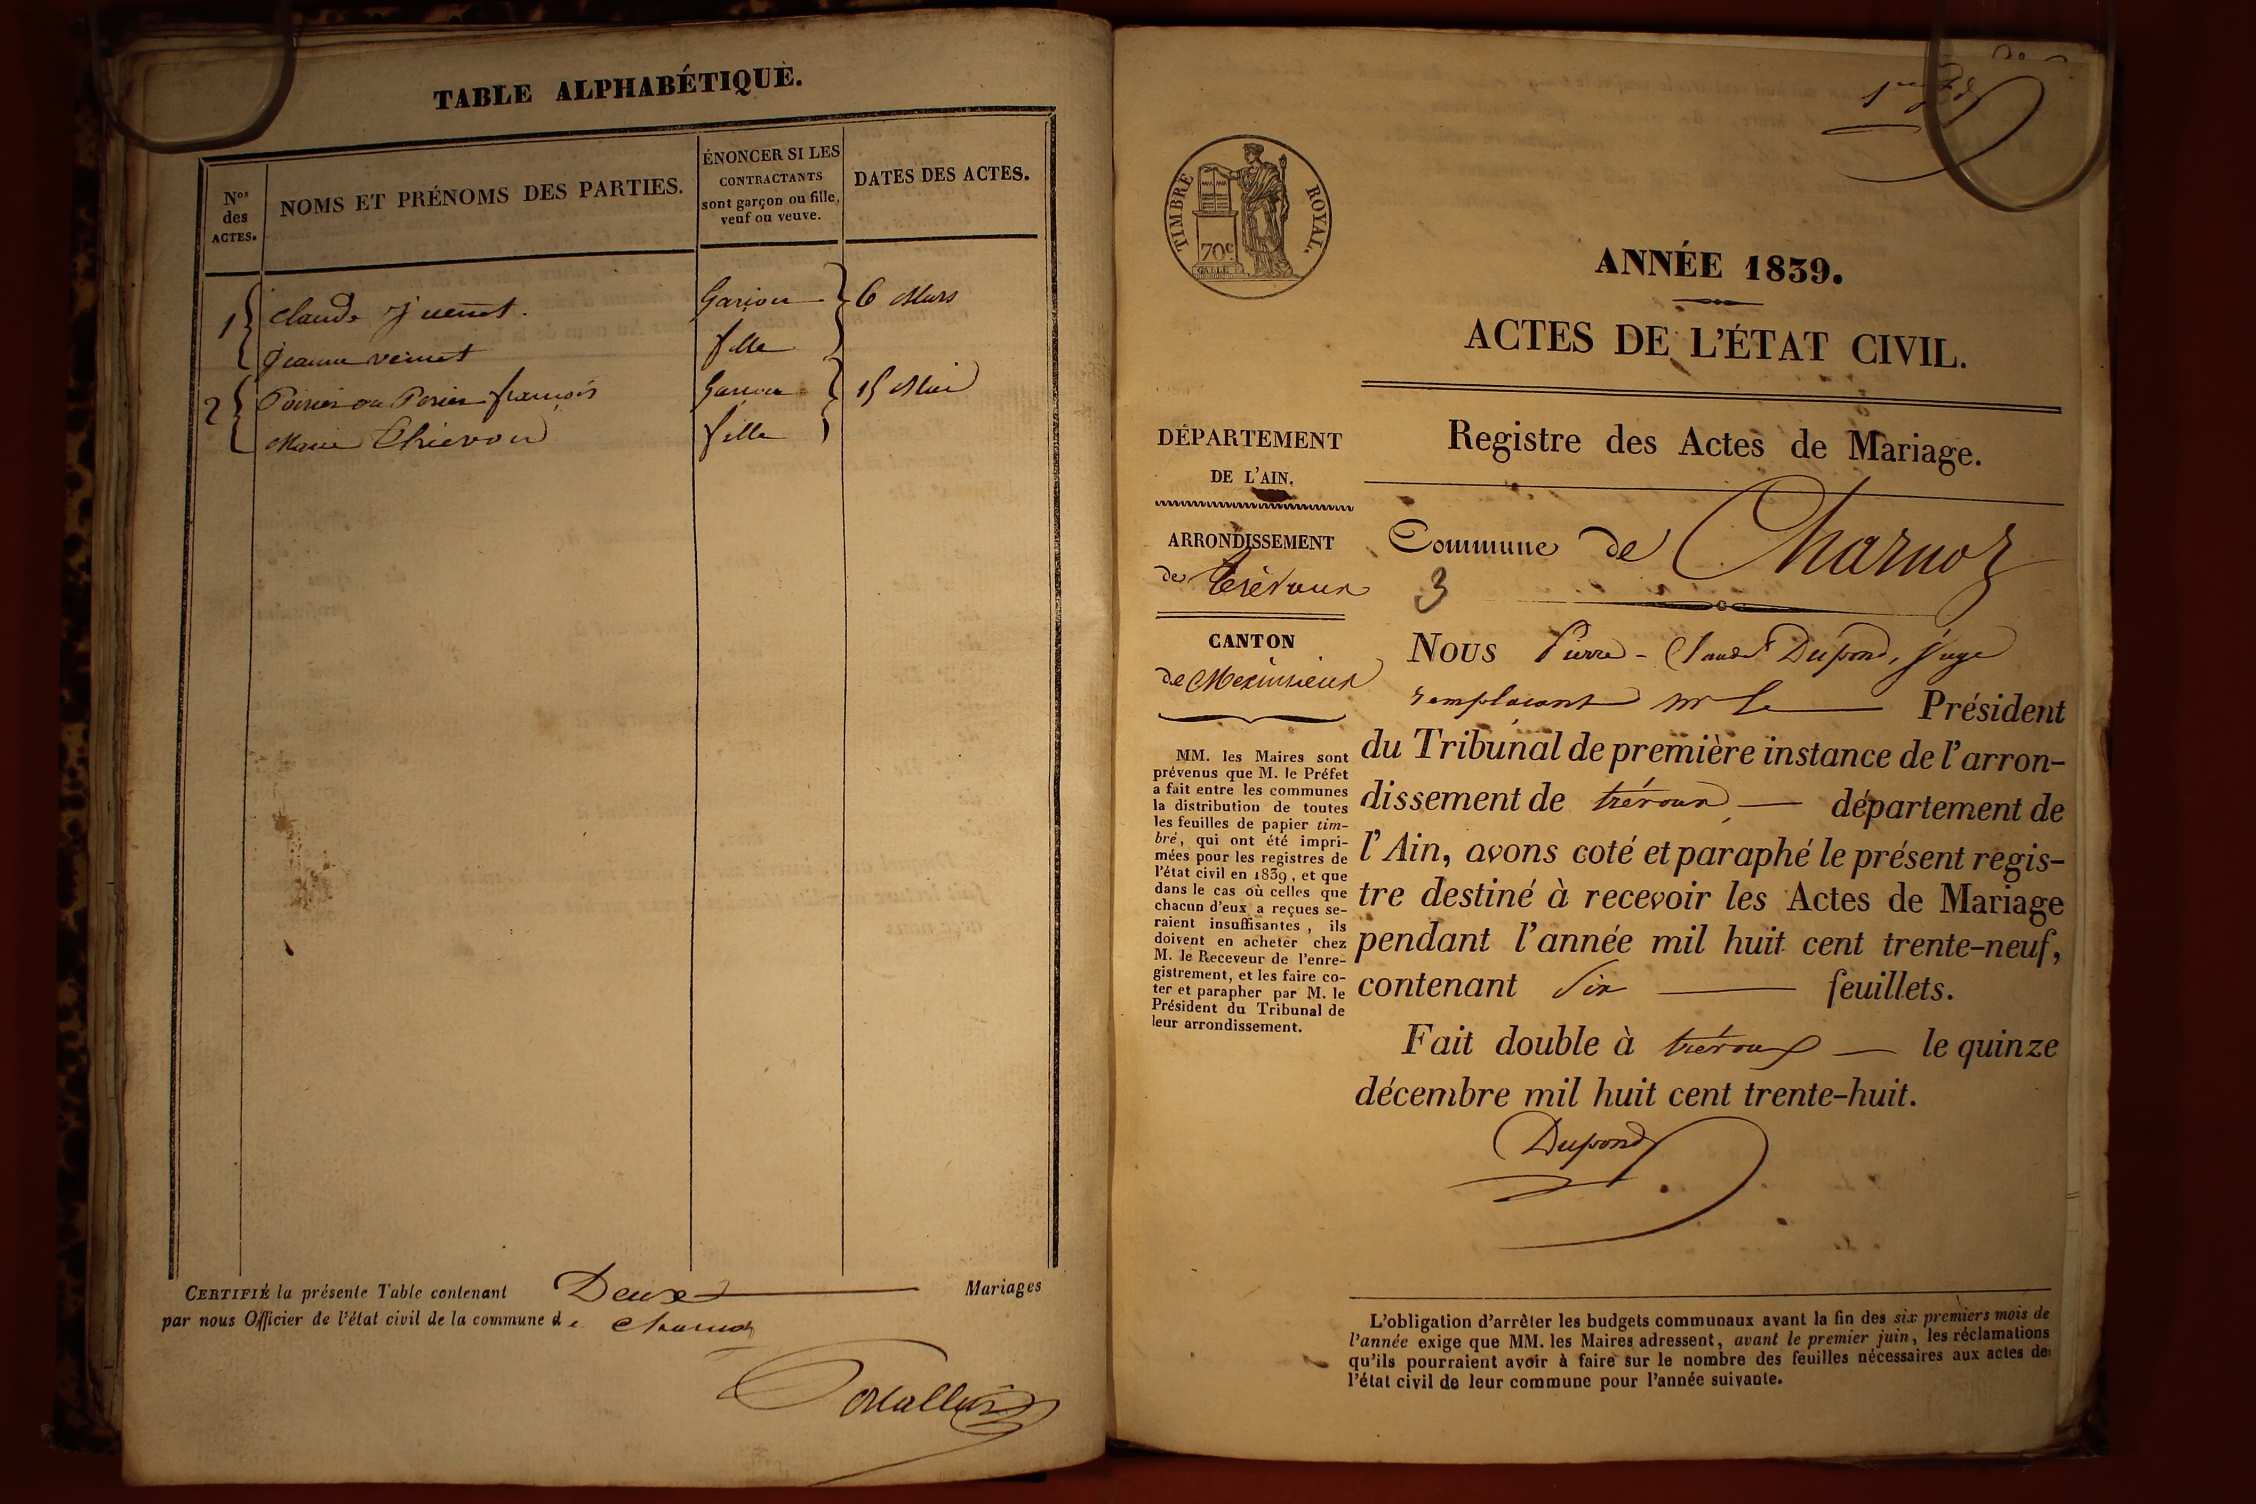 TABLE ALPHABÉTIQUE.
Nos des ACTES.
NOMS ET PRÉNOMS DES PARTIES.
ÉNONCER SI LES
CONTRACTANTS
sont garçon ou fille,
veuf ou veuve.
DATES DES ACTES.
1 Claude Juenet. Garçon 6 Mars
Jeanne venet fille
2 Poirier ou Perier françois Garçon 15 Mai
Marie Thievon fille
CERTIFIÉ la présente Table contenant Deux Mariages
par nous Officier de l'état civil de la commune de Charnoz
TIMBRE ROYAL.
70c
GALLE F.
ANNÉE 1839.
ACTES DE L'ÉTAT CIVIL.
DÉPARTEMENT
DE L'AIN.
ARRONDISSEMENT
de Trévoux
CANTON
de Meximieux
MM. les Maires sont
prévenus que M. le Préfet
a fait entre les communes
la distribution de toutes
les feuilles de papier tim-
bré, qui ont été impri-
mées pour les registres de
l'état civil en 1839, et que
dans le cas où celles que
chacun d'eux a reçues se-
raient insuffisantes, ils
doivent en acheter chez
M. le Receveur de l'enre-
gistrement, et les faire co-
ter et parapher par M. le
Président du Tribunal de
leur arrondissement.
Registre des Actes de Mariage.
Commune de Charnoz
3
Nous Pierre-Claude Dupond, juge
remplaçant mr le Président
du Tribunal de première instance de l'arron-
dissement de trévoux département de
l'Ain, avons coté et paraphé le présent regis-
tre destiné à recevoir les Actes de Mariage
pendant l'année mil huit cent trente-neuf,
contenant six feuillets.
Fait double à trévoux le quinze
décembre mil huit cent trente-huit.
Dupond
L'obligation d'arrêter les budgets communaux avant la fin des six premiers mois de
l'année exige que MM. les Maires adressent, avant le premier juin, les réclamations
qu'ils pourraient avoir à faire sur le nombre des feuilles nécessaires aux actes de
l'état civil de leur commune pour l'année suivante.